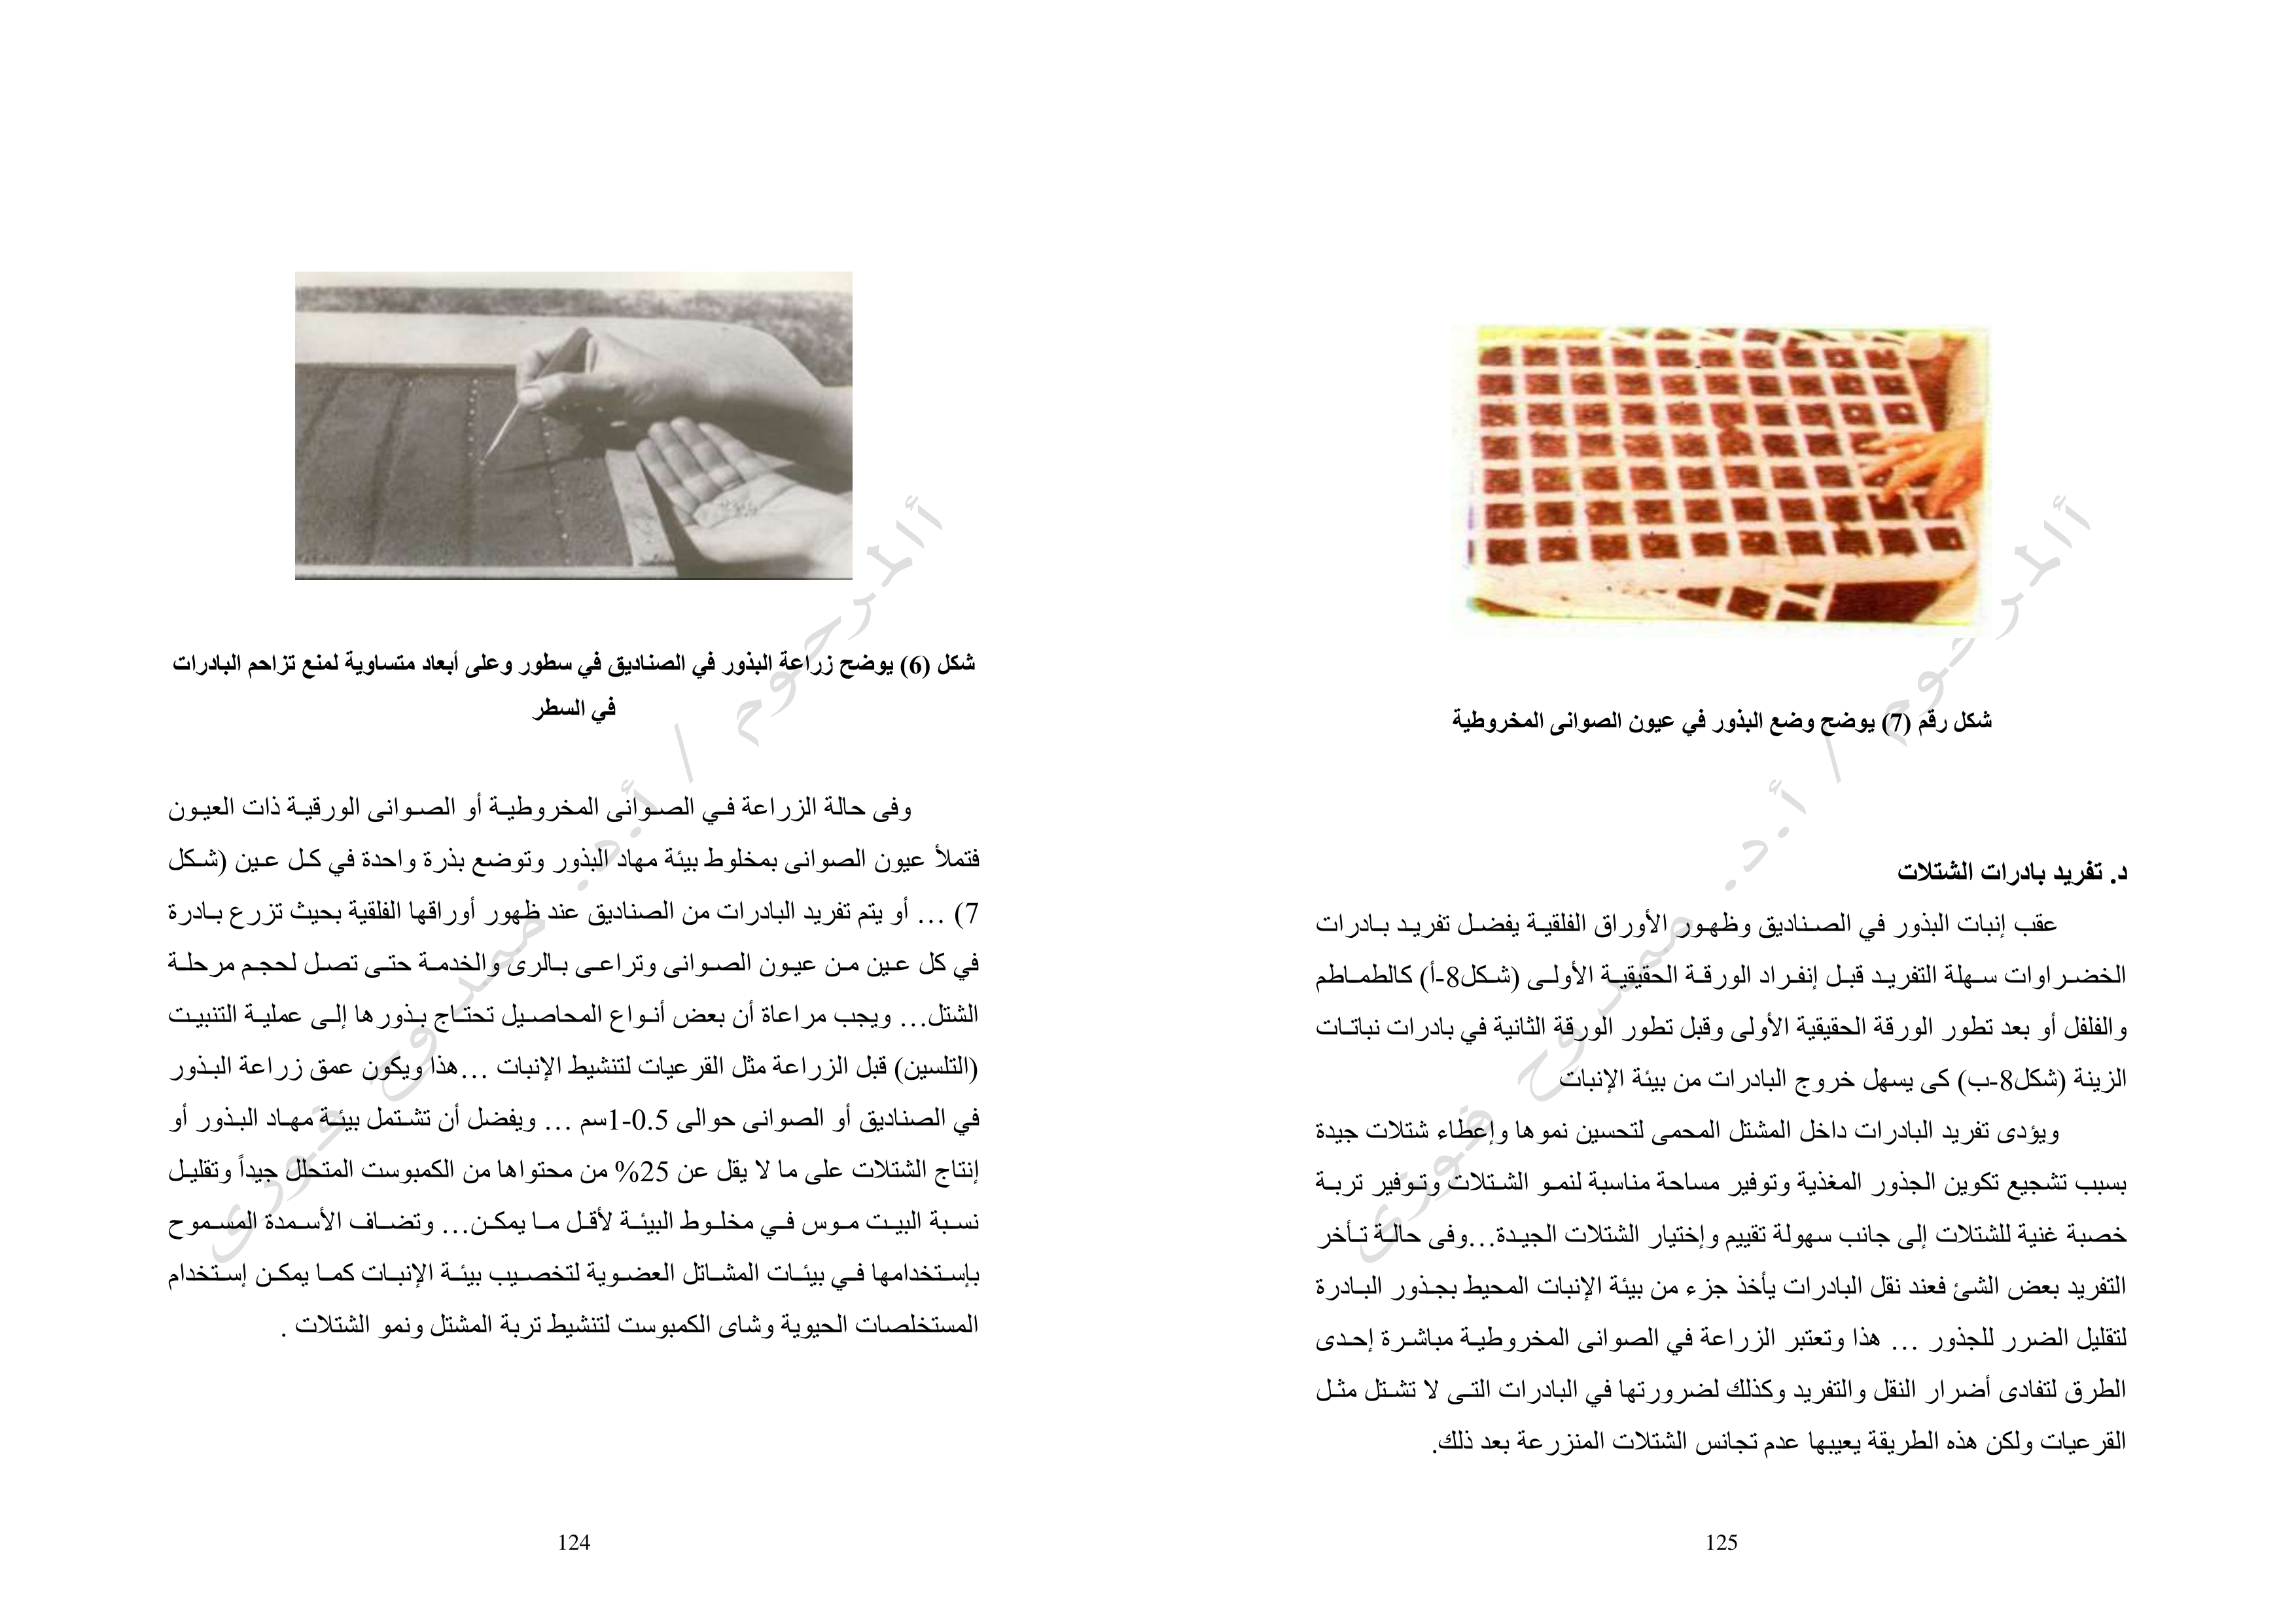 شكل (6) يوضح زراعة البذور في الصناديق في سطور وعلى أبعاد متساوية لمنع تزاحم البادرات
في السطر
وفى حالة الزراعة في الصوانى المخروطية أو الصوانى الورقية ذات العيون
فتملأ عيون الصوانى بمخلوط بيئة مهاد البذور وتوضع بذرة واحدة في كل عين (شكل
7) ... أو يتم تفريد البادرات من الصناديق عند ظهور أوراقها الفلقية بحيث تزرع بادرة
في كل عين من عيون الصوانى وتراعى بالرى والخدمة حتى تصل لحجم مرحلة
الشتل... ويجب مراعاة أن بعض أنواع المحاصيل تحتاج بذورها إلى عملية التنبيت
(التلسين) قبل الزراعة مثل القرعيات لتنشيط الإنبات ...هذا ويكون عمق زراعة البذور
في الصناديق أو الصوانى حوالى 0.5-1سم ... ويفضل أن تشتمل بيئة مهاد البذور أو
إنتاج الشتلات على ما لا يقل عن 25% من محتواها من الكمبوست المتحلل جيداً وتقليل
نسبة البيت موس في مخلوط البيئة لأقل ما يمكن... وتضاف الأسمدة المسموح
بإستخدامها في بيئات المشاتل العضوية لتخصيب بيئة الإنبات كما يمكن إستخدام
المستخلصات الحيوية وشاى الكمبوست لتنشيط تربة المشتل ونمو الشتلات .
124
شكل رقم (7) يوضح وضع البذور في عيون الصوانى المخروطية
د. تفريد بادرات الشتلات
عقب إنبات البذور في الصناديق وظهور الأوراق الفلقية يفضل تفريد بادرات
الخضراوات سهلة التفريد قبل إنفراد الورقة الحقيقية الأولى (شكل8-أ) كالطماطم
والفلفل أو بعد تطور الورقة الحقيقية الأولى وقبل تطور الورقة الثانية في بادرات نباتات
الزينة (شكل8-ب) كى يسهل خروج البادرات من بيئة الإنبات
ويؤدى تفريد البادرات داخل المشتل المحمى لتحسين نموها وإعطاء شتلات جيدة
بسبب تشجيع تكوين الجذور المغذية وتوفير مساحة مناسبة لنمو الشتلات وتوفير تربة
خصبة غنية للشتلات إلى جانب سهولة تقييم وإختيار الشتلات الجيدة...وفى حالة تأخر
التفريد بعض الشئ فعند نقل البادرات يأخذ جزء من بيئة الإنبات المحيط بجذور البادرة
لتقليل الضرر للجذور ... هذا وتعتبر الزراعة في الصوانى المخروطية مباشرة إحدى
الطرق لتفادى أضرار النقل والتفريد وكذلك لضرورتها في البادرات التى لا تشتل مثل
القرعيات ولكن هذه الطريقة يعيبها عدم تجانس الشتلات المنزرعة بعد ذلك.
125
ألمرحوم / أ.د. ممدوح فوزى
ألمرحوم / أ.د. ممدوح فوزى